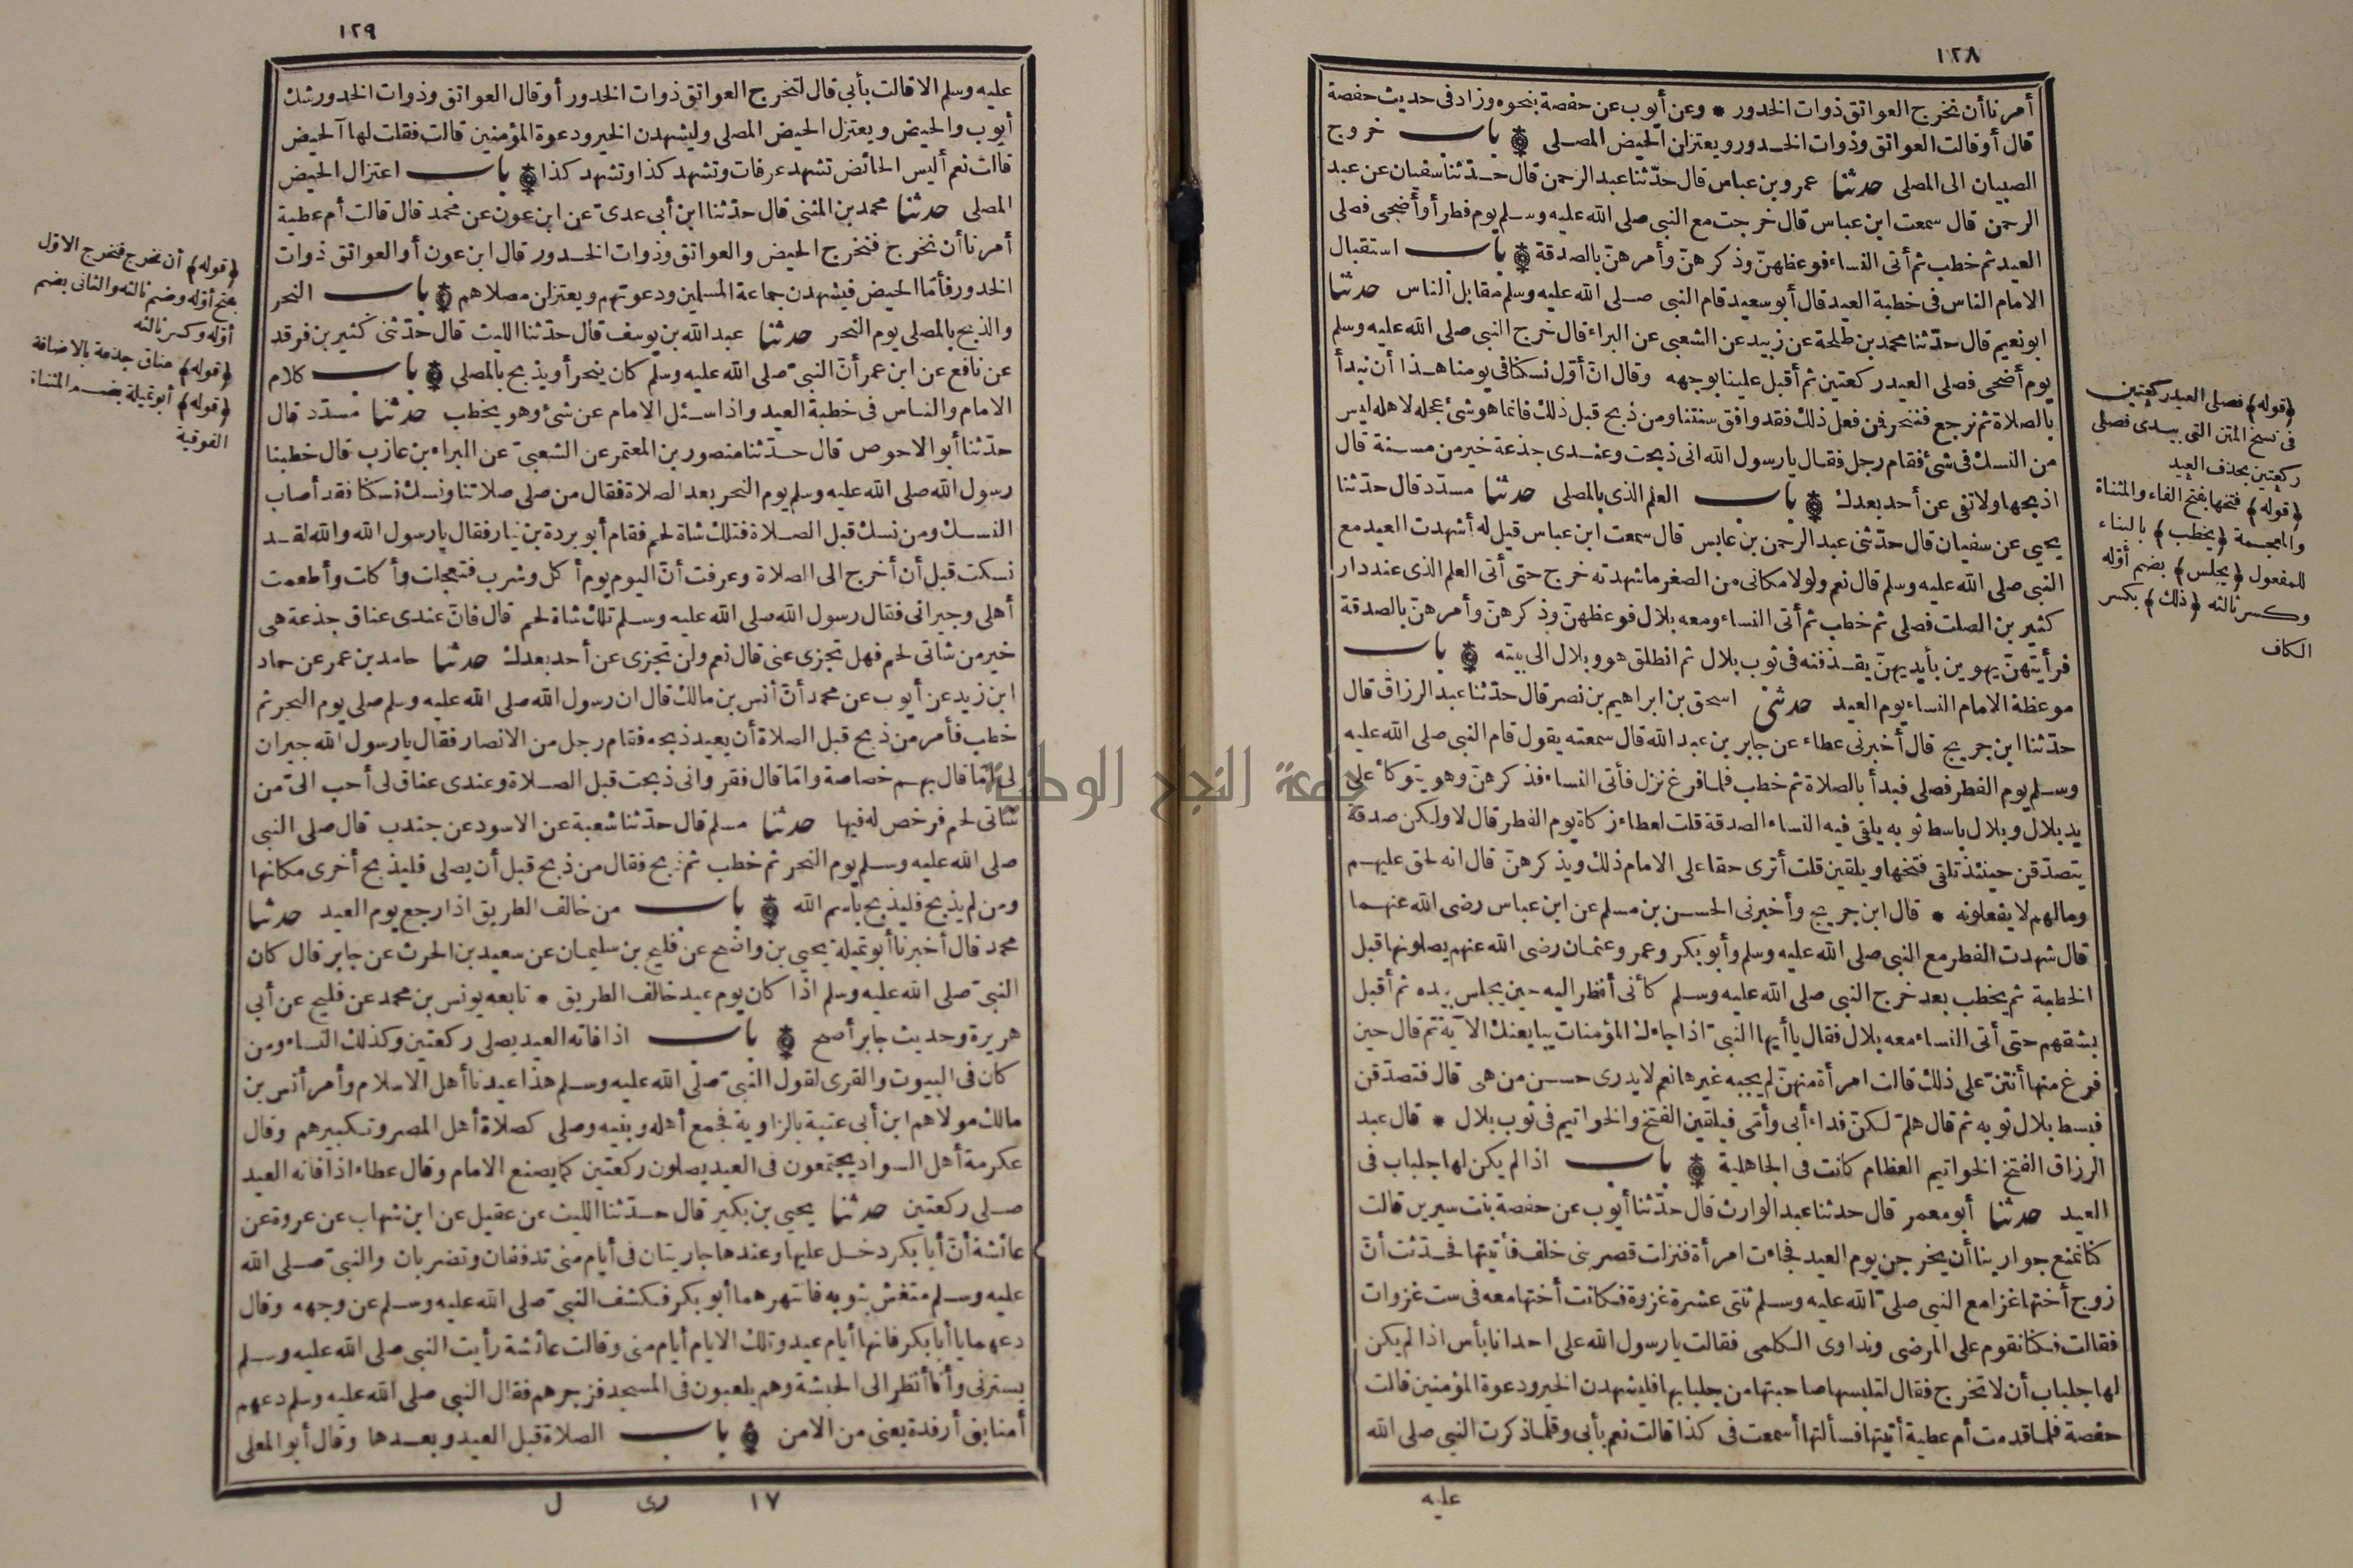 ١٢٨
أمرنا أن نخرج العواتق ذوات الخدور * وعن أيوب عن حفصة بنحوه وزاد فى حديث حفصة
قال أو قالت العواتق وذوات الخدور ويعتزلن الحيض المصلى باب خروج
الصبيان الى المصلى حدثنا عمرو بن عباس قال حدّثنا عبد الرحمن قال حدّثنا سفيان عن عبد
الرحمن قال سمعت ابن عباس قال خرجت مع النبى صلى الله عليه وسلم يوم فطر أو أضحى فصلى
العيد ثم خطب ثم أتى النساء فوعظهنّ وذكرهنّ وأمرهنّ بالصدقة باب استقبال
الامام الناس فى خطبة العيد قال أبو سعيد قام النبى صلى الله عليه وسلم مقابل الناس حدثنا
ابو نعيم قال حدّثنا محمد بن طلحة عن زبيد عن الشعبى عن البراء قال خرج النبى صلى الله عليه وسلم
يوم أضحى فصلى العيد ركعتين ثم أقبل علينا بوجهه وقال انّ أوّل نسكنا فى يومنا هذا أن نبدأ
بالصلاة ثم نرجع فننحر فمن فعل ذلك فقد وافق سنتنا ومن ذبح قبل ذلك فانما هو شئ عجله لاهله ليس
من النسك فى شئ فقام رجل فقال يا رسول الله انى ذبحت وعندى جذعة خير من مسنة قال
اذبحها ولا تفى عن أحد بعدك باب العلم الذى بالمصلى حدثنا مسدّد قال حدّثنا
يحيى عن سفيان قال حدّثنى عبد الرحمن بن عابس قال سمعت ابن عباس قيل له أشهدت العيد مع
النبى صلى الله عليه وسلم قال نعم ولولا مكانى من الصغر ما شهدته خرج حتى أتى العلم الذى عند دار
كثير بن الصلت فصلى ثم خطب ثم أتى النساء ومعه بلال فوعظهنّ وذكرهنّ وأمرهنّ بالصدقة
فرأيتهنّ يهوين بأيديهنّ يقذفنه فى ثوب بلال ثم انطلق هو وبلال الى بيته باب
موعظة الامام النساء يوم العيد حدثنى اسحق بن ابراهيم بن نصر قال حدّثنا عبد الرزاق قال
حدّثنا ابن جريج قال أخبرنى عطاء عن جابر بن عبد الله قال سمعته يقول قام النبى صلى الله عليه
وسلم يوم الفطر فصلى فبدأ بالصلاة ثم خطب فلما فرغ نزل فأتى النساء فذكرهنّ وهو يتوكأ على
يد بلال وبلال باسط ثوبه يلقى فيه النساء الصدقة قلت لعطاء زكاة يوم الفطر قال لا ولكن صدقة
يتصدّقن حينئذ تلقى فتخها ويلقين قلت أترى حقا على الامام ذلك ويذكرهنّ قال انه لحق عليهم
وما لهم لا يفعلونه * قال ابن جريج وأخبرنى الحسن بن مسلم عن ابن عباس رضى الله عنهما
قال شهدت الفطر مع النبى صلى الله عليه وسلم وأبو بكر وعمر وعثمان رضى الله عنهم يصلونها قبل
الخطبة ثم يخطب بعد خرج النبى صلى الله عليه وسلم كأنى أنظر اليه حين يجلس بيده ثم أقبل
يشقهم حتى أتى النساء معه بلال فقال يا أيها النبىّ اذا جاءك المؤمنات يبايعنك الآية ثم قال حين
فرغ منها أنتنّ على ذلك قالت امرأة منهنّ لم يجبه غيرها نعم لا يدرى حسن من هى قال فتصدّقن
فبسط بلال ثوبه ثم قال هلمّ لكنّ فداء أبى وأمّى فيلقين الفتخ والخواتيم فى ثوب بلال * قال عبد
الرزاق الفتخ الخواتيم العظام كانت فى الجاهلية باب اذا لم يكن لها جلباب فى
العيد حدثنا أبو معمر قال حدثنا عبد الوارث قال حدّثنا أيوب عن حفصة بنت سيرين قالت
كنا نمنع جوارينا أن يخرجن يوم العيد فجاءت امرأة فنزلت قصر بنى خلف فأتيتها فحدّثت أنّ
زوج أختها غزا مع النبى صلى الله عليه وسلم ثنتى عشرة غزوة فكانت أختها معه فى ست غزوات
فقالت فكنا نقوم على المرضى ونداوى الكلمى فقالت يا رسول الله على احدانا بأس اذا لم يكن
لها جلباب أن لا تخرج فقال لتلبسها صاحبتها من جلبابها فليشهدن الخير ودعوة المؤمنين قالت
حفصة فلما قدمت أم عطية أتيتها فسألتها أسمعت فى كذا قالت نعم بأبى وقلما ذكرت النبى صلى الله
عليه
﴿قوله﴾ فصلى العيد ركعتين
فى نسخ المتن التى بيدى فصلى
ركعتين بحذف العيد
﴿قوله﴾ فتخها بفتح الفاء والمثناة
والمعجمة ﴿يخطب﴾ بالبناء
للمفعول ﴿يجلس﴾ بضم أوّله
وكسر ثالثه ﴿ذلك﴾ بكسر
الكاف
١٢٩
عليه وسلم الا قالت بأبى قال لتخرج العواتق ذوات الخدور أو قال العواتق وذوات الخدور شك
أيوب والحيض ويعتزل الحيض المصلى وليشهدن الخير ودعوة المؤمنين قالت فقلت لها آلحيض
قالت نعم أليس الحائض تشهد عرفات وتشهد كذا وتشهد كذا باب اعتزال الحيض
المصلى حدثنا محمد بن المثنى قال حدّثنا ابن أبى عدىّ عن ابن عون عن محمد قال قالت أم عطية
أمرنا أن نخرج فنخرج الحيض والعواتق وذوات الخدور قال ابن عون أو العواتق ذوات
الخدور فأمّا الحيض فيشهدن جماعة المسلمين ودعوتهم ويعتزلن مصلاهم باب النحر
والذبح بالمصلى يوم النحر حدثنا عبد الله بن يوسف قال حدّثنا الليث قال حدّثنى كثير بن فرقد
عن نافع عن ابن عمر أنّ النبىّ صلى الله عليه وسلم كان ينحر أو يذبح بالمصلى باب كلام
الامام والناس فى خطبة العيد واذا سئل الامام عن شئ وهو يخطب حدثنا مسدّد قال
حدّثنا أبو الاحوص قال حدّثنا منصور بن المعتمر عن الشعبىّ عن البراء بن عازب قال خطبنا
رسول الله صلى الله عليه وسلم يوم النحر بعد الصلاة فقال من صلى صلاتنا ونسك نسكنا فقد أصاب
النسك ومن نسك قبل الصلاة فتلك شاة لحم فقام أبو بردة بن نيار فقال يا رسول الله والله لقد
نسكت قبل أن أخرج الى الصلاة وعرفت أنّ اليوم يوم أكل وشرب فتعجلت وأكلت وأطعمت
أهلى وجيرانى فقال رسول الله صلى الله عليه وسلم تلك شاة لحم قال فانّ عندى عناق جذعة هى
خير من شاتى لحم فهل تجزى عنى قال نعم ولن تجزى عن أحد بعدك حدثنا حامد بن عمر عن حماد
ابن زيد عن أيوب عن محمد أنّ أنس بن مالك قال ان رسول الله صلى الله عليه وسلم صلى يوم النحر ثم
خطب فأمر من ذبح قبل الصلاة أن يعيد ذبحه فقام رجل من الانصار فقال يا رسول الله جيران
لى امّا قال بهم خصاصة وامّا قال فقر وانى ذبحت قبل الصلاة وعندى عناق لى أحب الىّ من
شاتى لحم فرخص له فيها حدثنا مسلم قال حدّثنا شعبة عن الاسود عن جندب قال صلى النبى
صلى الله عليه وسلم يوم النحر ثم خطب ثم ذبح فقال من ذبح قبل أن يصلى فليذبح أخرى مكانها
ومن لم يذبح فليذبح باسم الله باب من خالف الطريق اذا رجع يوم العيد حدثنا
محمد قال أخبرنا أبو تميلة يحيى بن واضح عن فليح بن سليمان عن سعيد بن الحرث عن جابر قال كان
النبىّ صلى الله عليه وسلم اذا كان يوم عيد خالف الطريق * تابعه يونس بن محمد عن فليح عن أبى
هريرة وحديث جابر أصح باب اذا فاته العيد يصلى ركعتين وكذلك النساء ومن
كان فى البيوت والقرى لقول النبىّ صلى الله عليه وسلم هذا عيدنا أهل الاسلام وأمر أنس بن
مالك مولاهم ابن أبى عتبة بالزاوية فجمع أهله وبنيه وصلى كصلاة أهل المصر وتكبيرهم وقال
عكرمة أهل السواد يجتمعون فى العيد يصلون ركعتين كما يصنع الامام وقال عطاء اذا فاته العيد
صلى ركعتين حدثنا يحيى بن بكير قال حدّثنا الليث عن عقيل عن ابن شهاب عن عروة عن
عائشة أنّ أبا بكر دخل عليها وعندها جاريتان فى أيام منى تدففان وتضربان والنبىّ صلى الله
عليه وسلم متغش بثوبه فانتهرهما أبو بكر فكشف النبىّ صلى الله عليه وسلم عن وجهه وقال
دعهما يا أبا بكر فانها أيام عيد وتلك الايام أيام منى وقالت عائشة رأيت النبى صلى الله عليه وسلم
يسترنى وأنا أنظر الى الحبشة وهم يلعبون فى المسجد فزجرهم فقال النبى صلى الله عليه وسلم دعهم
أمنا بنى أرفدة يعنى من الامن باب الصلاة قبل العيد وبعدها وقال أبو المعلى
١٧ رى ل
﴿قوله﴾ أن نخرج فنخرج الاوّل
بفتح أوّله وضم ثالثه والثانى بضم
أوّله وكسر ثالثه
﴿قوله﴾ عناق جذعة بالاضافة
﴿قوله﴾ أبو تميلة بضم المثناة
الفوقية
جامعة النجاح الوطنية